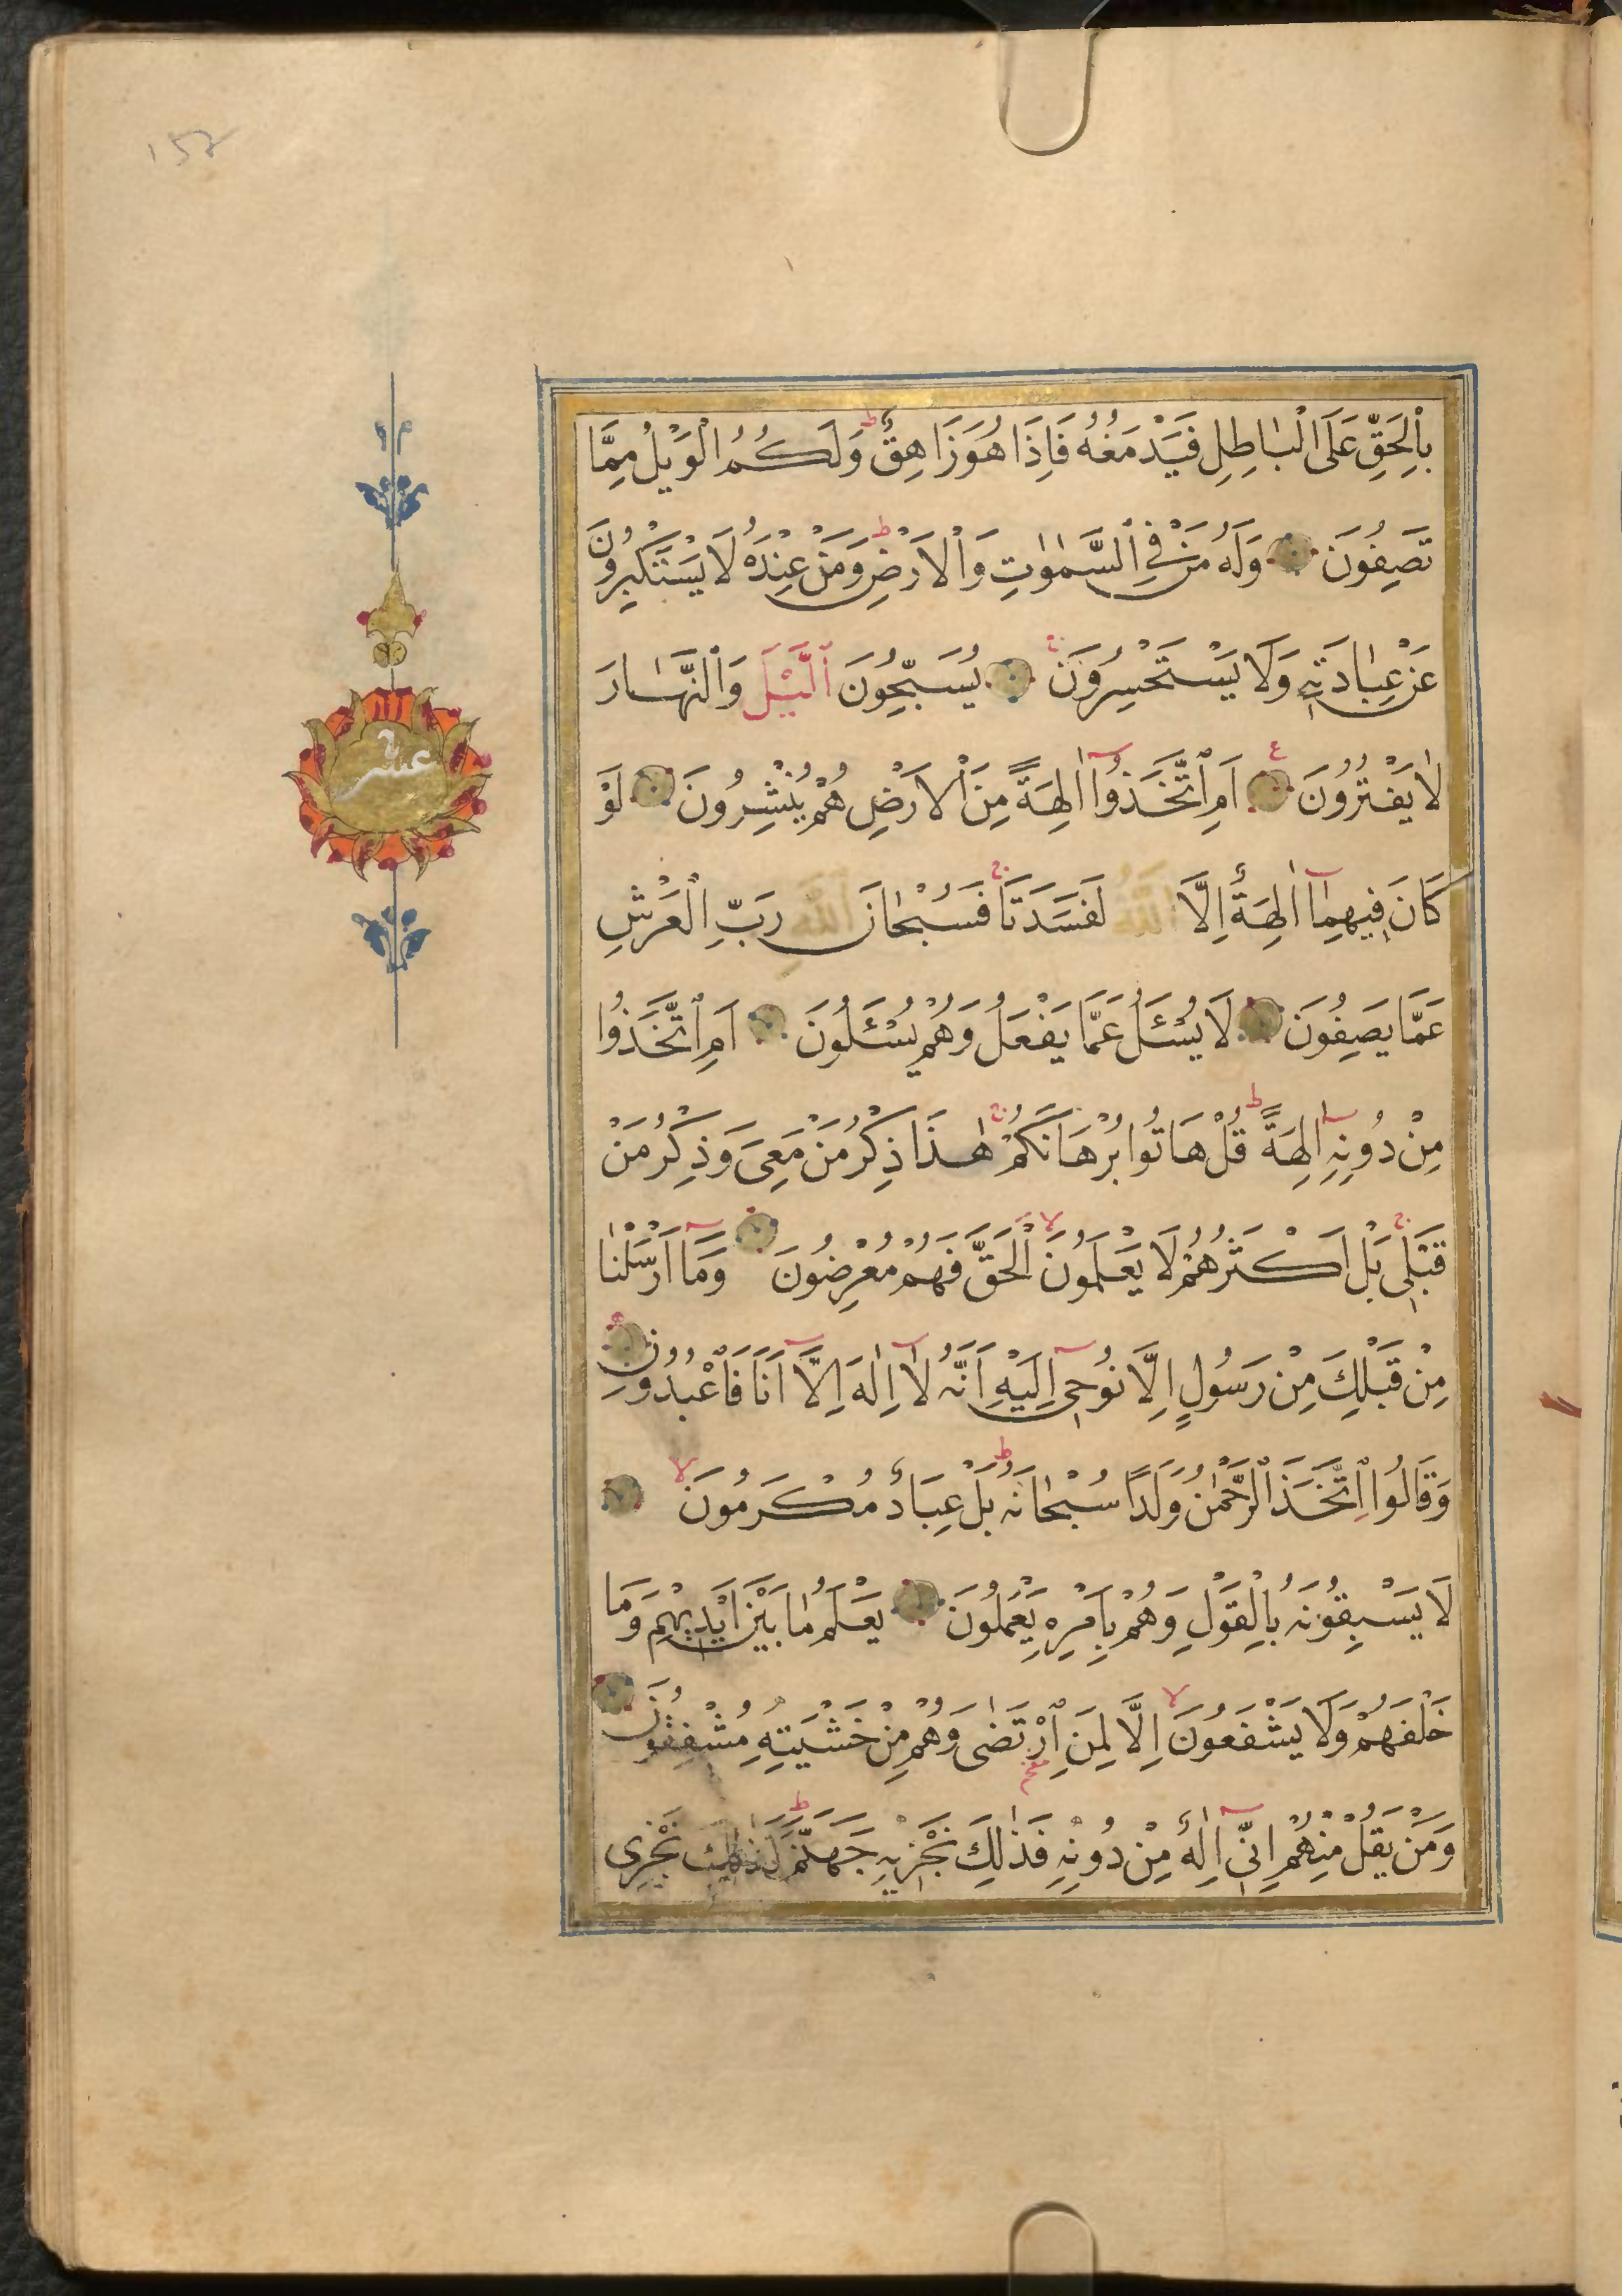 ١٥٢
بِالْحَقِّ عَلَى الْبَاطِلِ فَيَدْمَغُهُ فَاِذَا هُوَ زَاهِقٌ ط وَلَكُمُ الْوَيْلُ مِمَّا
تَصِفُونَ وَلَهُ مَنْ فِي السَّمٰوٰتِ وَالْاَرْضِ ط وَمَنْ عِنْدَهُ لَا يَسْتَكْبِرُونَ
عَنْ عِبَادَتِهِ وَلَا يَسْتَحْسِرُونَ ج يُسَبِّحُونَ الَّيْلَ وَالنَّهَارَ
لَا يَفْتُرُونَ ع اَمِ اتَّخَذُوا اٰلِهَةً مِنَ الْاَرْضِ هُمْ يُنْشِرُونَ لَوْ
كَانَ فِيهِمَا اٰلِهَةٌ اِلَّا اللّٰهُ لَفَسَدَتَا ج فَسُبْحَانَ اللّٰهِ رَبِّ الْعَرْشِ
عَمَّا يَصِفُونَ لَا يُسْئَلُ عَمَّا يَفْعَلُ وَهُمْ يُسْئَلُونَ اَمِ اتَّخَذُوا
مِنْ دُونِهِ اٰلِهَةً ط قُلْ هَاتُوا بُرْهَانَكُمْ ج هٰذَا ذِكْرُ مَنْ مَعِيَ وَذِكْرُ مَنْ
قَبْلِي ج بَلْ اَكْثَرُهُمْ لَا يَعْلَمُونَ لا الْحَقَّ فَهُمْ مُعْرِضُونَ وَمَا اَرْسَلْنَا
مِنْ قَبْلِكَ مِنْ رَسُولٍ اِلَّا نُوحِي اِلَيْهِ اَنَّهُ لَا اِلٰهَ اِلَّا اَنَا فَاعْبُدُونِ
وَقَالُوا اتَّخَذَ الرَّحْمٰنُ وَلَدًا سُبْحَانَهُ ط بَلْ عِبَادٌ مُكْرَمُونَ لا
لَا يَسْبِقُونَهُ بِالْقَوْلِ وَهُمْ بِاَمْرِهِ يَعْمَلُونَ يَعْلَمُ مَا بَيْنَ اَيْدِيهِمْ وَمَا
خَلْفَهُمْ وَلَا يَشْفَعُونَ لا اِلَّا لِمَنِ ارْتَضٰى وَهُمْ مِنْ خَشْيَتِهِ مُشْفِقُونَ
وَمَنْ يَقُلْ مِنْهُمْ اِنِّي اِلٰهٌ مِنْ دُونِهِ فَذٰلِكَ نَجْزِيهِ جَهَنَّمَ ط كَذٰلِكَ نَجْزِي
عشر